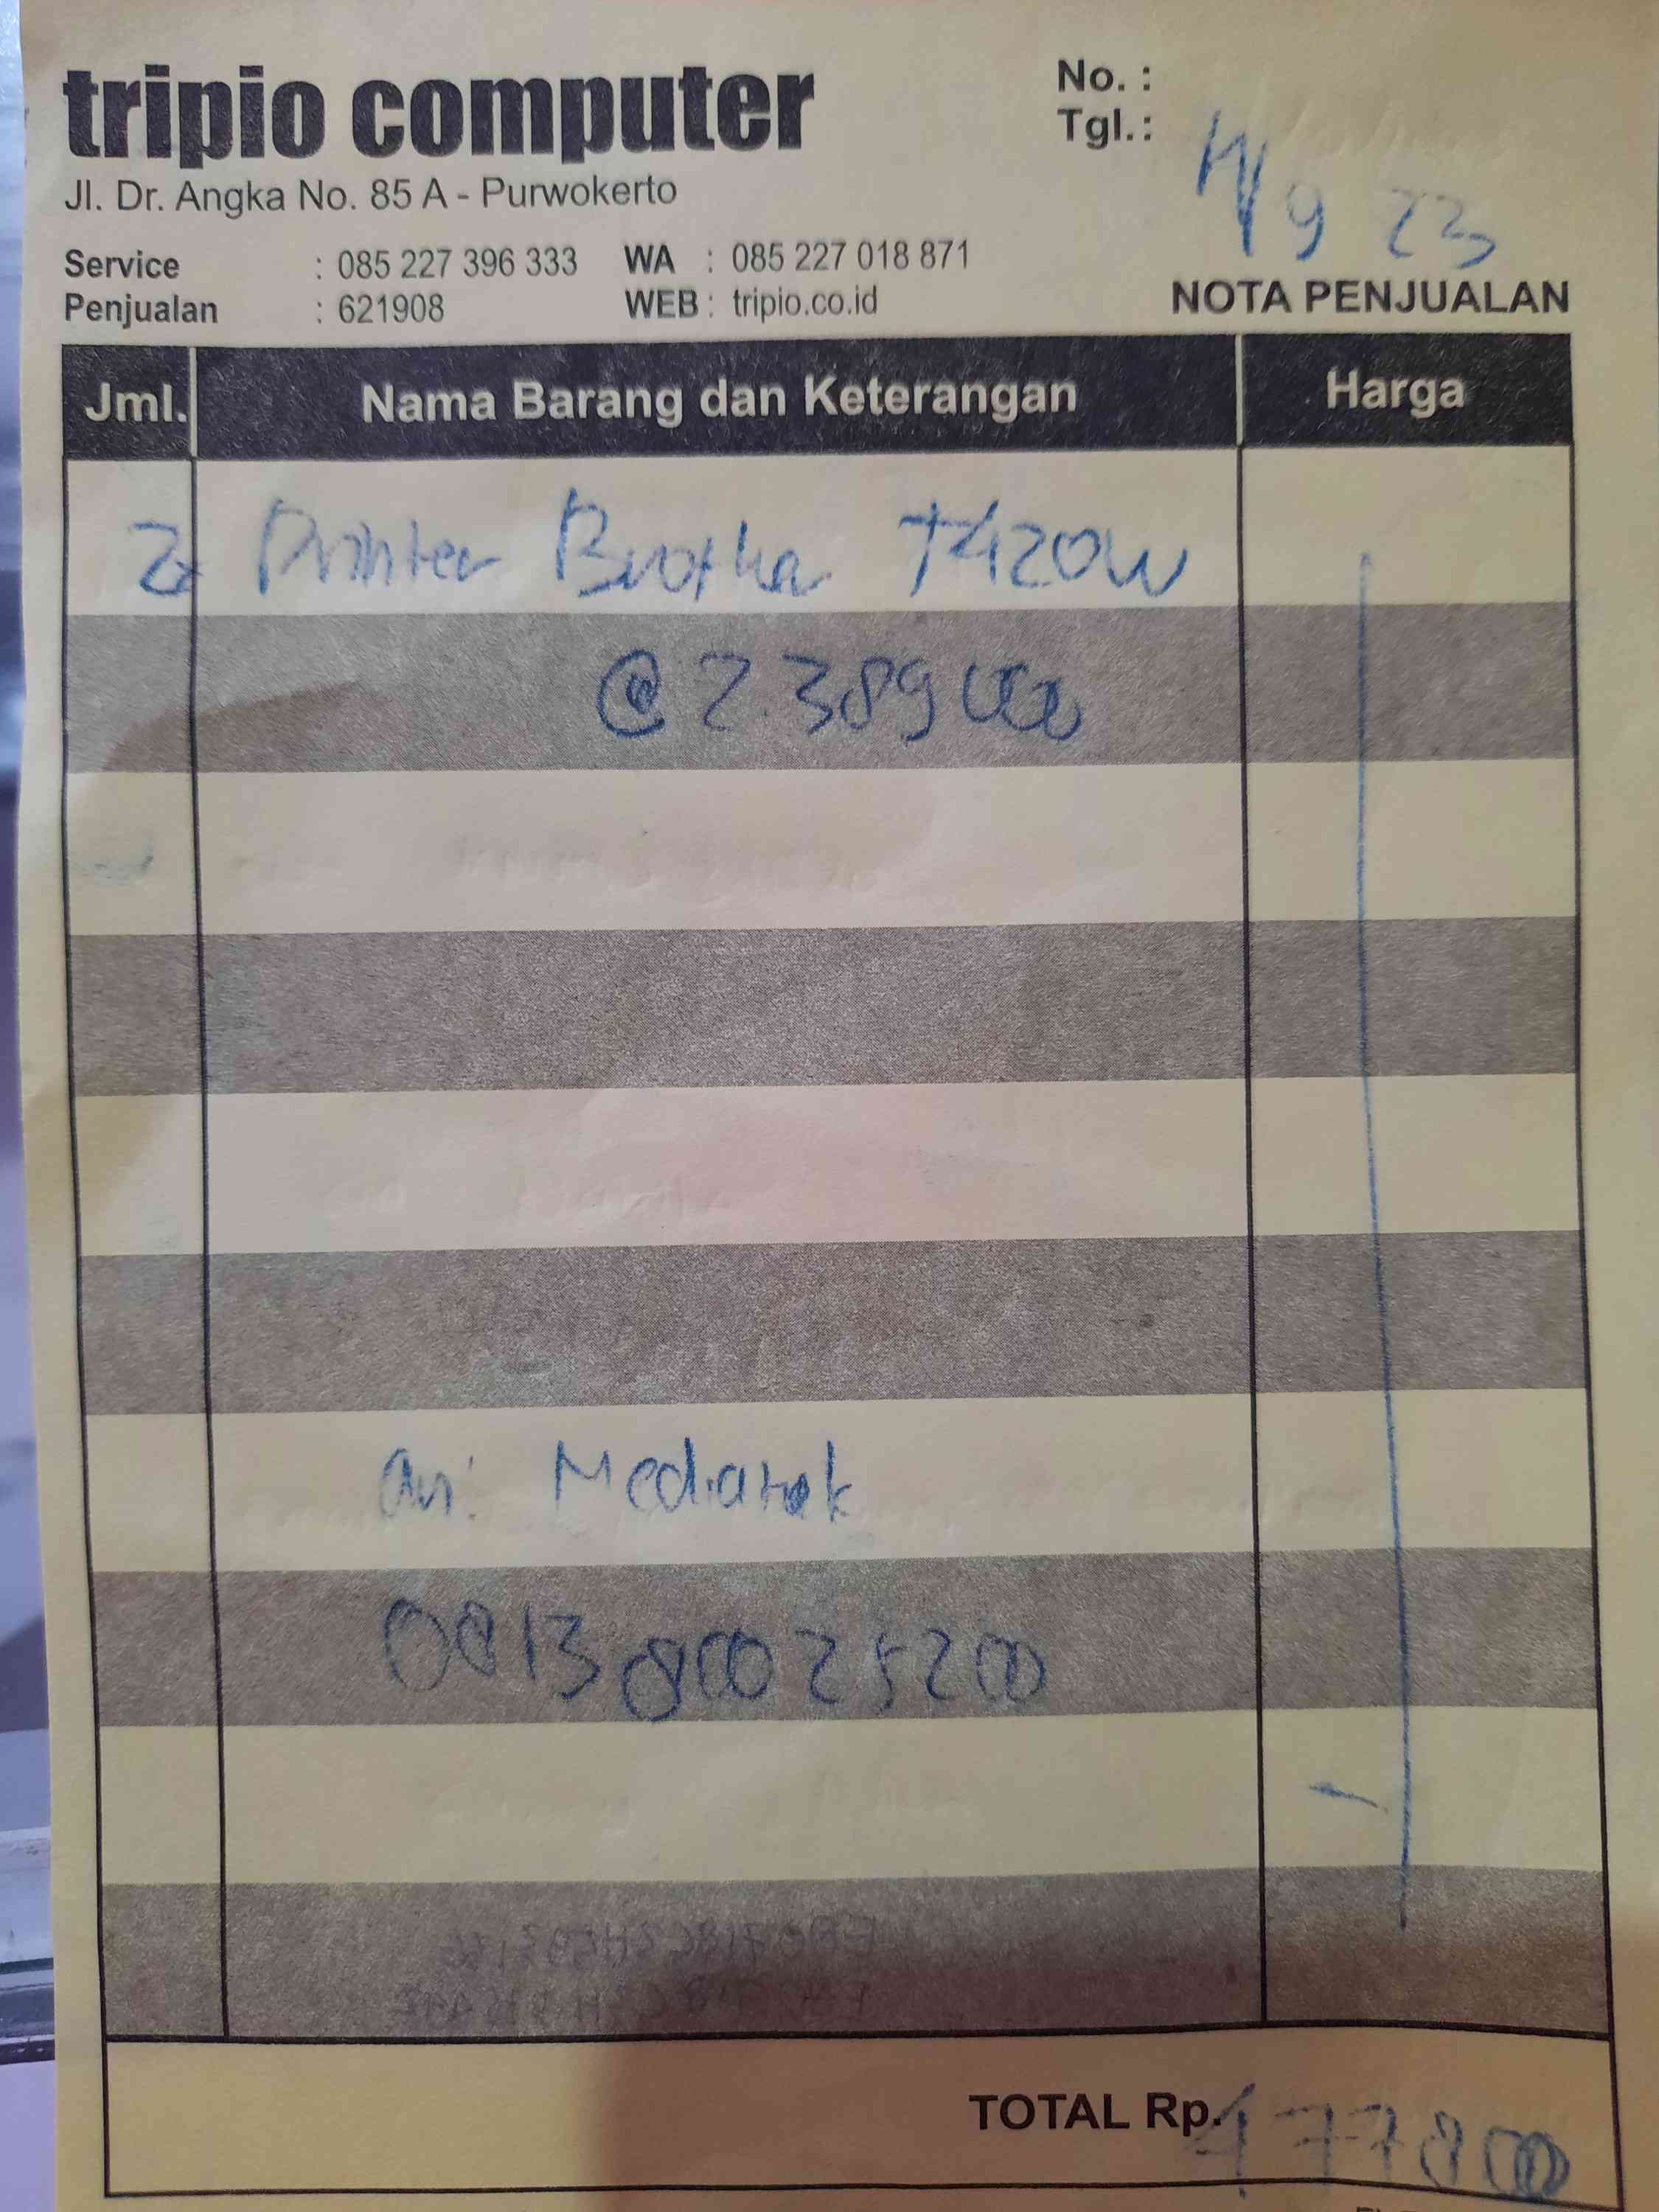 tripio computer
No. :
Tgl.: 4/9 23
Jl. Dr. Angka No. 85 A - Purwokerto
Service : 085 227 396 333 WA : 085 227 018 871
Penjualan : 621908 WEB : tripio.co.id
NOTA PENJUALAN
Jml. Nama Barang dan Keterangan Harga
2 Printer Brother T420W
@ 2.389 000
an: Mediatek
0813 8002 5200
TOTAL Rp. 4778000